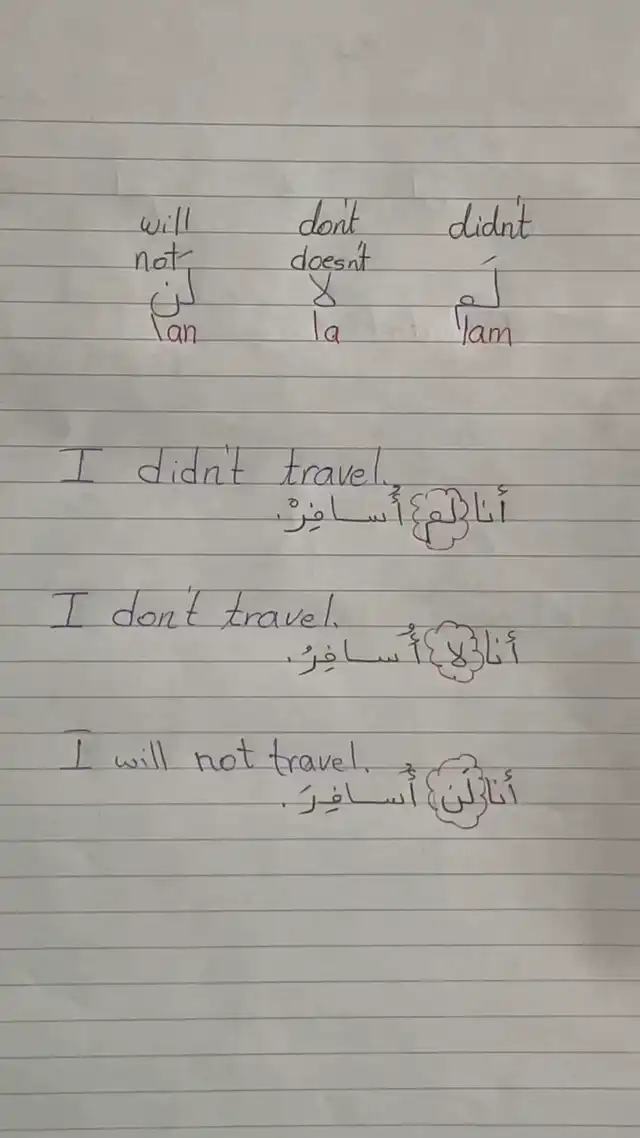 will don't didn't
not doesn't
لن لا لَم
lan la lam
I didn't travel.
أنا لم أُسافِرْ.
I don't travel.
أنا لا أُسافِرُ.
I will not travel.
أنا لَن أُسافِرَ.